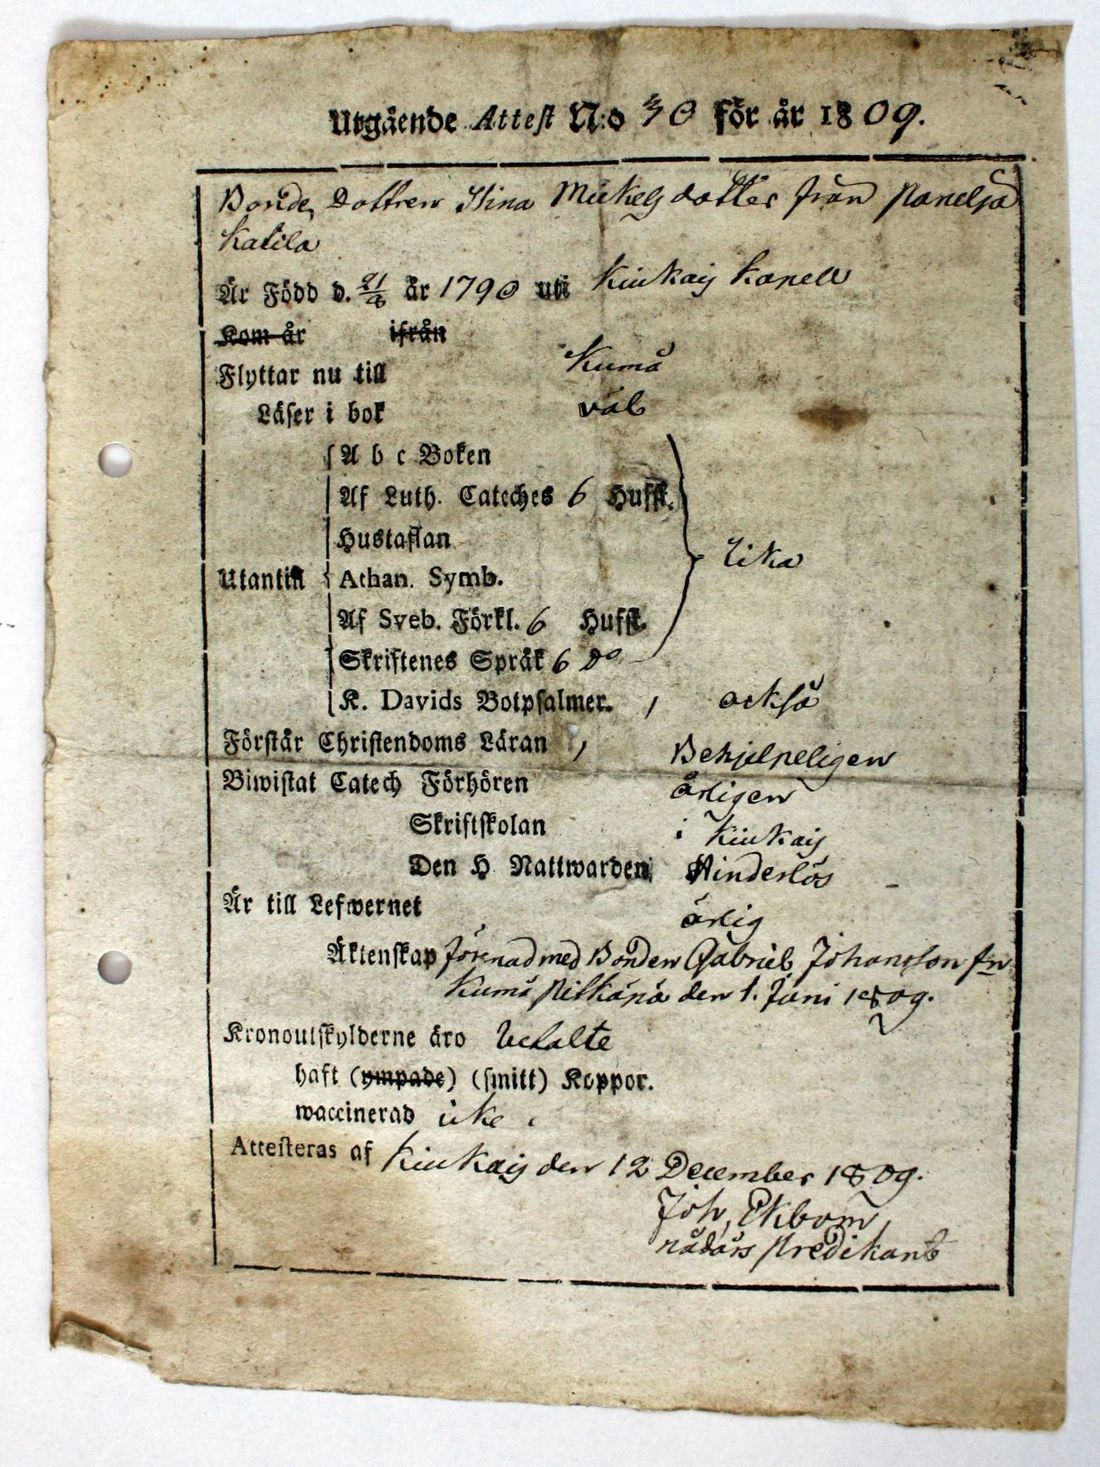 Utgående Attest N:o 30 för år 1809.
Bonde Dottren Stina Mickelsdotter från Panelja
Katila
Är Född d. 21/8 år 1790 uti Kiukais Kapell
Kom år ifrån
Flyttar nu till Kumå
Läser i bok väl
Utantill
A b c Boken
Af Luth. Cateches 6 Hufst.
Hustaflan
Athan. Symb.
Af Sveb. Förkl. 6 Hufst.
Skriftenes Språk 6 do
lika
K. Davids Botpsalmer. också
Förstår Christendoms Läran Behjelpeligen
Biwistat Catech Förhören årligen
Skriftskolan i Kiukais
Den H Nattwarden Hinderlös
Är till Lefwernet ärlig
Äktenskap förenad med Bonden Gabriel Johansson fn
Kumå Pitkäpä den 1. Juni 1809.
Kronoutskylderne äro betalte
haft (ympade) (smitt) Koppor.
waccinerad icke
Attesteras af Kiukais den 12 December 1809.
Joh, Ekbom,
nådårs Predikant